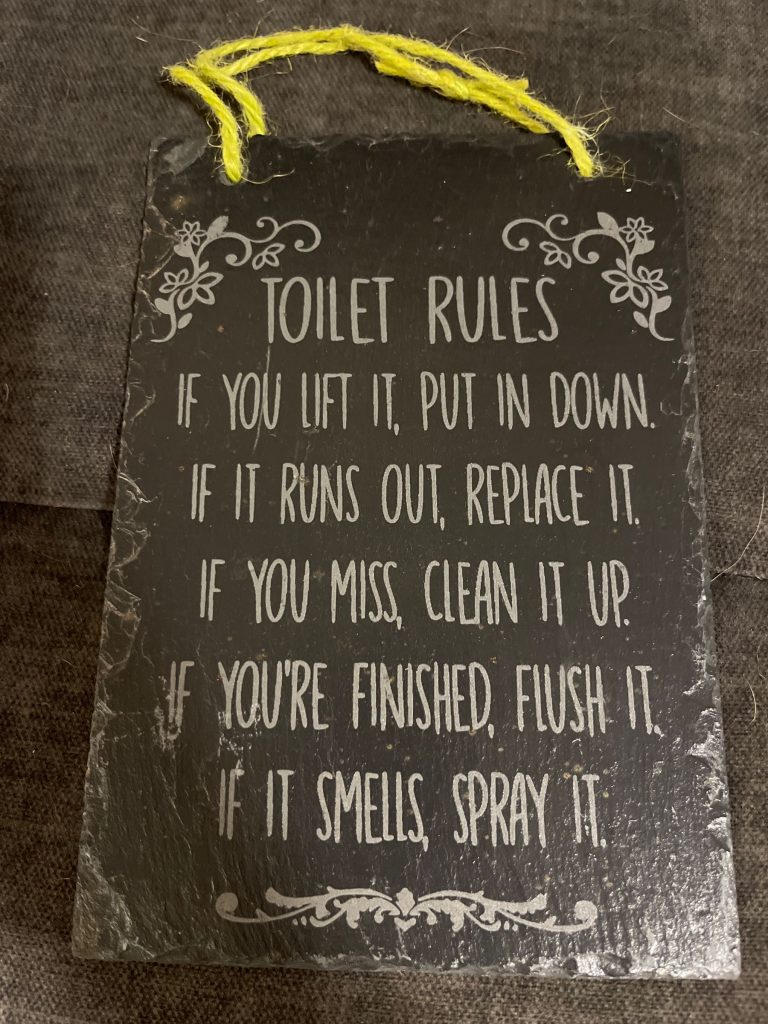 TOILET RULES
IF YOU LIFT IT, PUT IN DOWN.
IF IT RUNS OUT, REPLACE IT.
IF YOU MISS, CLEAN IT UP.
IF YOU'RE FINISHED, FLUSH IT.
IF IT SMELLS, SPRAY IT.